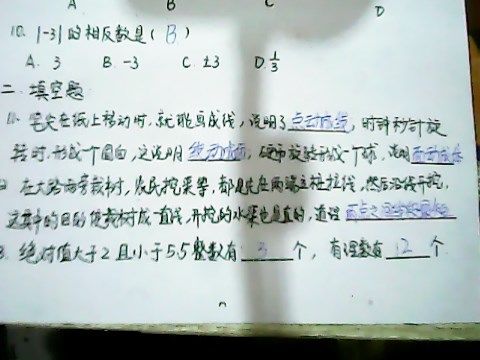 A B C D
10. |-3|的相反数是( B )
A. 3 B. -3 C. ±3 D. 1/3
二、填空题
11. 笔尖在纸上移动时,就能画成线,说明了点动成线,时钟秒针旋
转时,形成一个圆面,这说明线动成面,硬币旋转形成一个球,说明面动成体
在大路两旁栽树,农民挖渠等,都是先在两端立桩拉线,然后沿线开挖,
的目的使栽树成一直线,开挖的水渠也是直的,道理
3. 绝对值大于2且小于5.5整数有 3 个,有理数有 12 个.